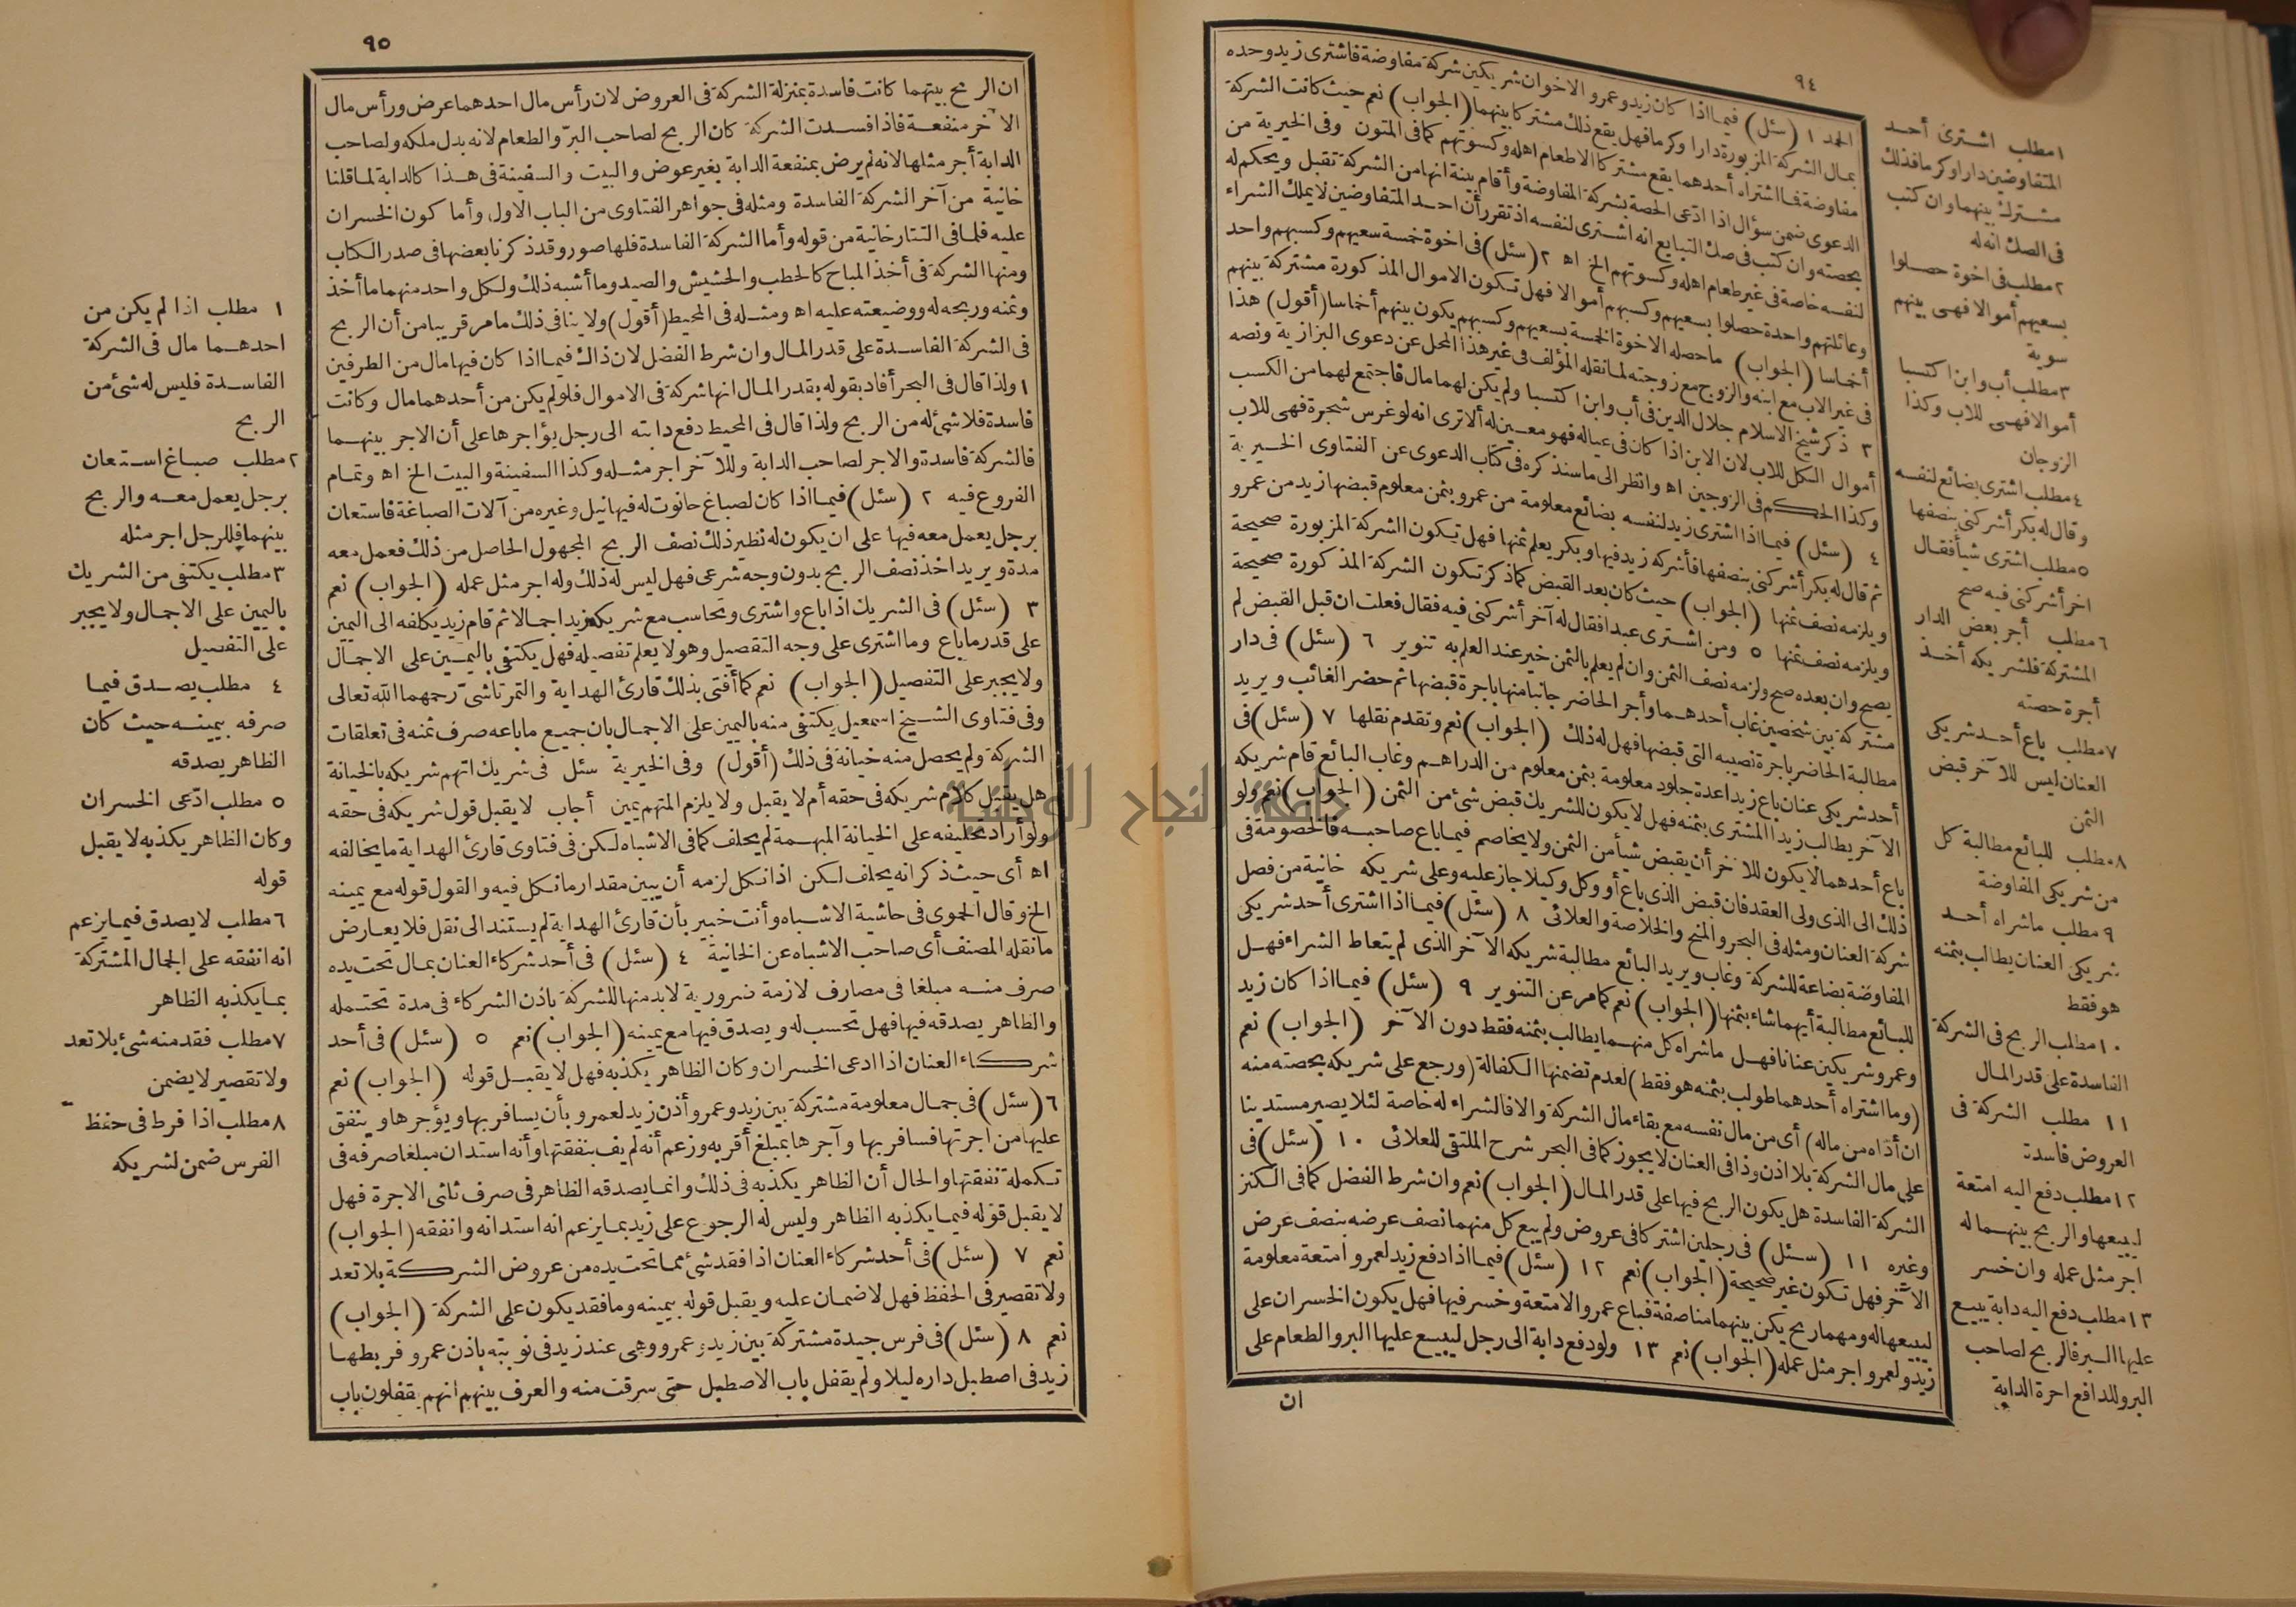 ٩٤
الجد ١ (سئل) فيما اذا كان زيد وعمرو الاخوان شريكين شركة مفاوضة فاشترى زيد وحده
بمال الشركة المزبورة دارا وكرما فهل يقع ذلك مشتركا بينهما (الجواب) نعم حيث كانت الشركة
مفاوضة فما اشتراه أحدهما يقع مشتركا الا طعام اهله وكسوتهم كما فى المتون وفى الخيرية من
الدعوى ضمن سؤال اذا ادّعى الحصة بشركة المفاوضة وأقام بينة انها من الشركة تقبل ويحكم له
بحصته وان كتب فى صك التبايع انه اشترى لنفسه اذ تقرر أن احد المتفاوضين لا يملك الشراء
لنفسه خاصة فى غير طعام اهله وكسوتهم الخ اه ٢ (سئل) فى اخوة خمسة سعيهم وكسبهم واحد
وعائلتهم واحدة حصلوا بسعيهم وكسبهم أموالا فهل تكون الاموال المذكورة مشتركة بينهم
أخماسا (الجواب) ما حصله الاخوة الخمسة بسعيهم وكسبهم يكون بينهم أخماسا (أقول) هذا
فى غير الاب مع ابنه والزوج مع زوجته لما نقله المؤلف فى غير هذا المحل عن دعوى البزازية ونصه
٣ ذكر شيخ الاسلام جلال الدين فى أب وابن اكتسبا ولم يكن لهما مال فاجتمع لهما من الكسب
أموال الكل للاب لان الابن اذا كان فى عياله فهو معين له ألا ترى انه لو غرس شجرة فهى للاب
وكذا الحكم فى الزوجين اه وانظر الى ما سنذكره فى كتاب الدعوى عن الفتاوى الخيرية
٤ (سئل) فيما اذا اشترى زيد لنفسه بضائع معلومة من عمرو بثمن معلوم قبضها زيد من عمرو
ثم قال له بكر أشركنى بنصفها فأشركه زيد فيها وبكر يعلم ثمنها فهل تكون الشركة المزبورة صحيحة
ويلزمه نصف ثمنها (الجواب) حيث كان بعد القبض كما ذكر تكون الشركة المذكورة صحيحة
ويلزمه نصف ثمنها ٥ ومن اشترى عبدا فقال له آخر أشركنى فيه فقال فعلت ان قبل القبض لم
يصح وان بعده صح ولزمه نصف الثمن وان لم يعلم بالثمن خير عند العلم به تنوير ٦ (سئل) فى دار
مشتركة بين شخصين غاب أحدهما وأجر الحاضر جانبا منها باجرة قبضها ثم حضر الغائب ويريد
مطالبة الحاضر باجرة نصيبه التى قبضها فهل له ذلك (الجواب) نعم وتقدم نقلها ٧ (سئل) فى
أحد شريكى عنان باع زيدا عدة جلود معلومة بثمن معلوم من الدراهم وغاب البائع قام شريكه
الآخر يطالب زيدا المشترى بثمنه فهل لا يكون للشريك قبض شئ من الثمن (الجواب) نعم ولو
باع أحدهما لا يكون للآخر أن يقبض شيأ من الثمن ولا يخاصم فيما باع صاحبه فالخصومة فى
ذلك الى الذى ولى العقد فان قبض الذى باع أو وكل وكيلا جاز عليه وعلى شريكه خانية من فصل
شركة العنان ومثله فى البحر والمنح والخلاصة والعلائى ٨ (سئل) فيما اذا اشترى أحد شريكى
المفاوضة بضاعة للشركة وغاب ويريد البائع مطالبة شريكه الآخر الذى لم يتعاط الشراء فهل
للبائع مطالبة أيهما شاء بثمنها (الجواب) نعم كما مر عن التنوير ٩ (سئل) فيما اذا كان زيد
وعمرو شريكين عنانا فهل ما شراه كل منهما يطالب بثمنه فقط دون الآخر (الجواب) نعم
(وما اشتراه أحدهما طولب بثمنه هو فقط) لعدم تضمنها الكفالة (ورجع على شريكه بحصته منه
ان أدّاه من ماله) أى من مال نفسه مع بقاء مال الشركة والا فالشراء له خاصة لئلا يصير مستدينا
على مال الشركة بلا اذن وذا فى العنان لا يجوز كما فى البحر شرح الملتقى للعلائى ١٠ (سئل) فى
الشركة الفاسدة هل يكون الربح فيها على قدر المال (الجواب) نعم وان شرط الفضل كما فى الكنز
وغيره ١١ (سئل) فى رجلين اشتركا فى عروض ولم يبع كل منهما نصف عرضه بنصف عرض
الآخر فهل تكون غير صحيحة (الجواب) نعم ١٢ (سئل) فيما اذا دفع زيد لعمرو امتعة معلومة
ليبيعها له ومهما ربح يكن بينهما مناصفة فباع عمرو الامتعة وخسر فيها فهل يكون الخسران على
زيد ولعمرو اجر مثل عمله (الجواب) نعم ١٣ ولو دفع دابة الى رجل ليبيع عليها البر والطعام على
ان
١ مطلب اشترى أحد
المتفاوضين دارا وكرما فذلك
مشترك بينهما وان كتب
فى الصك انه له
٢ مطلب فى اخوة حصلوا
بسعيهم أموالا فهى بينهم
سوية
٣ مطلب أب وابن اكتسبا
أموالا فهى للاب وكذا
الزوجان
٤ مطلب اشترى بضائع لنفسه
وقال له بكر أشركنى بنصفها
٥ مطلب اشترى شيأ فقال
اخر أشركنى فيه صح
٦ مطلب أجر بعض الدار
المشتركة فلشريكه أخذ
أجرة حصته
٧ مطلب باع أحد شريكى
العنان ليس للآخر قبض
الثمن
٨ مطلب للبائع مطالبة كل
من شريكى المفاوضة
٩ مطلب ما شراه أحد
شريكى العنان يطالب بثمنه
هو فقط
١٠ مطلب الربح فى الشركة
الفاسدة على قدر المال
١١ مطلب الشركة فى
العروض فاسدة
١٢ مطلب دفع اليه امتعة
ليبيعها والربح بينهما له
اجر مثل عمله وان خسر
١٣ مطلب دفع اليه دابة يبيع
عليها البر فالربح لصاحب
البر وللدافع اجرة الدابة
٩٥
ان الربح بينهما كانت فاسدة بمنزلة الشركة فى العروض لان رأس مال احدهما عرض ورأس مال
الآخر منفعة فاذا فسدت الشركة كان الربح لصاحب البرّ والطعام لانه بدل ملكه ولصاحب
الدابة أجر مثلها لانه لم يرض بمنفعة الدابة بغير عوض والبيت والسفينة فى هذا كالدابة لما قلنا
خانية من آخر الشركة الفاسدة ومثله فى جواهر الفتاوى من الباب الاول وأما كون الخسران
عليه فلما فى التتارخانية من قوله وأما الشركة الفاسدة فلها صور وقد ذكرنا بعضها فى صدر الكتاب
ومنها الشركة فى أخذ المباح كالحطب والحشيش والصيد وما أشبه ذلك ولكل واحد منهما ما أخذ
وثمنه وربحه له ووضيعته عليه اه ومثله فى المحيط (أقول) ولا ينافى ذلك ما مر قريبا من أن الربح
فى الشركة الفاسدة على قدر المال وان شرط الفضل لان ذاك فيما اذا كان فيها مال من الطرفين
١ ولذا قال فى البحر أفاد بقوله بقدر المال انها شركة فى الاموال فلو لم يكن من أحدهما مال وكانت
فاسدة فلا شئ له من الربح ولذا قال فى المحيط دفع دابته الى رجل يؤاجرها على أن الاجر بينهما
فالشركة فاسدة والاجر لصاحب الدابة وللآخر اجر مثله وكذا السفينة والبيت الخ اه وتمام
الفروع فيه ٢ (سئل) فيما اذا كان لصباغ حانوت له فيها نيل وغيره من آلات الصباغة فاستعان
برجل يعمل معه فيها على ان يكون له نظير ذلك نصف الربح المجهول الحاصل من ذلك فعمل معه
مدة ويريد اخذ نصف الربح بدون وجه شرعى فهل ليس له ذلك وله اجر مثل عمله (الجواب) نعم
٣ (سئل) فى الشريك اذا باع واشترى وتحاسب مع شريكه زيد اجمالا ثم قام زيد يكلفه الى اليمين
على قدر ما باع وما اشترى على وجه التفصيل وهو لا يعلم تفصيله فهل يكتفى باليمين على الاجمال
ولا يجبر على التفصيل (الجواب) نعم كما أفتى بذلك قارئ الهداية والتمرتاشى رحمهما الله تعالى
وفى فتاوى الشيخ اسمعيل يكتفى منه باليمين على الاجمال بان جميع ما باعه صرف ثمنه فى تعلقات
الشركة ولم يحصل منه خيانة فى ذلك (أقول) وفى الخيرية سئل فى شريك اتهم شريكه بالخيانة
هل يقبل كلام شريكه فى حقه أم لا يقبل ولا يلزم المتهم يمين أجاب لا يقبل قول شريكه فى حقه
ولو أراد تحليفه على الخيانة المبهمة لم يحلف كما فى الاشباه لكن فى فتاوى قارئ الهداية ما يخالفه
اه أى حيث ذكر انه يحلف لكن اذا نكل لزمه أن يبين مقدار ما نكل فيه والقول قوله مع يمينه
الخ وقال الحموى فى حاشية الاشباه وأنت خبير بأن قارئ الهداية لم يستند الى نقل فلا يعارض
ما نقله المصنف أى صاحب الاشباه عن الخانية ٤ (سئل) فى أحد شركاء العنان بمال تحت يده
صرف منه مبلغا فى مصارف لازمة ضرورية لا بد منها للشركة باذن الشركاء فى مدة تحتمله
والظاهر يصدقه فيها فهل تحسب له ويصدق فيها مع يمينه (الجواب) نعم ٥ (سئل) فى أحد
شركاء العنان اذا ادعى الخسران وكان الظاهر يكذبه فهل لا يقبل قوله (الجواب) نعم
٦ (سئل) فى جمال معلومة مشتركة بين زيد وعمرو أذن زيد لعمرو بأن يسافر بها ويؤجرها وينفق
عليها من اجرتها فسافر بها وآجرها بمبلغ أقر به وزعم أنه لم يف بنفقتها وأنه استدان مبلغا صرفه فى
تكملة نفقتها والحال أن الظاهر يكذبه فى ذلك وانما يصدقه الظاهر فى صرف ثلثى الاجرة فهل
لا يقبل قوله فيما يكذبه الظاهر وليس له الرجوع على زيد بما يزعم انه استدانه وانفقه (الجواب)
نعم ٧ (سئل) فى أحد شركاء العنان اذا فقد شئ مما تحت يده من عروض الشركة بلا تعد
ولا تقصير فى الحفظ فهل لا ضمان عليه ويقبل قوله بيمينه وما فقد يكون على الشركة (الجواب)
نعم ٨ (سئل) فى فرس جيدة مشتركة بين زيد وعمرو وهى عند زيد فى نوبته باذن عمرو فربطها
زيد فى اصطبل داره ليلا ولم يقفل باب الاصطبل حتى سرقت منه والعرف بينهم انهم يقفلون باب
١ مطلب اذا لم يكن من
احدهما مال فى الشركة
الفاسدة فليس له شئ من
الربح
٢ مطلب صباغ استعان
برجل يعمل معه والربح
بينهما فللرجل اجر مثله
٣ مطلب يكتفى من الشريك
باليمين على الاجمال ولا يجبر
على التفصيل
٤ مطلب يصدق فيما
صرفه بيمينه حيث كان
الظاهر يصدقه
٥ مطلب ادّعى الخسران
وكان الظاهر يكذبه لا يقبل
قوله
٦ مطلب لا يصدق فيما يزعم
انه انفقه على الجمال المشتركة
بما يكذبه الظاهر
٧ مطلب فقد منه شئ بلا تعد
ولا تقصير لا يضمن
٨ مطلب اذا فرط فى حفظ
الفرس ضمن لشريكه
جامعة النجاح الوطنية